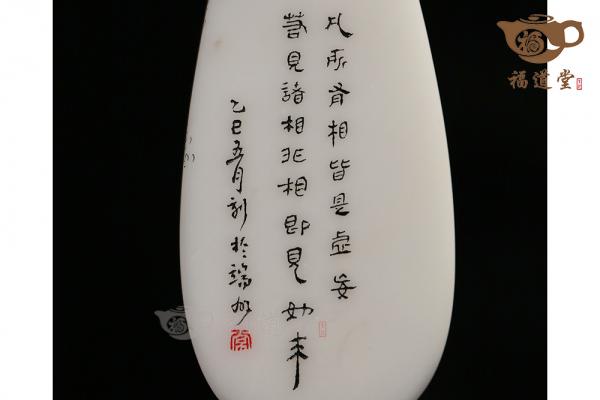 凡所有相皆是虚妄
若见諸相非相即見如来
乙巳五月刻於端州
福道堂